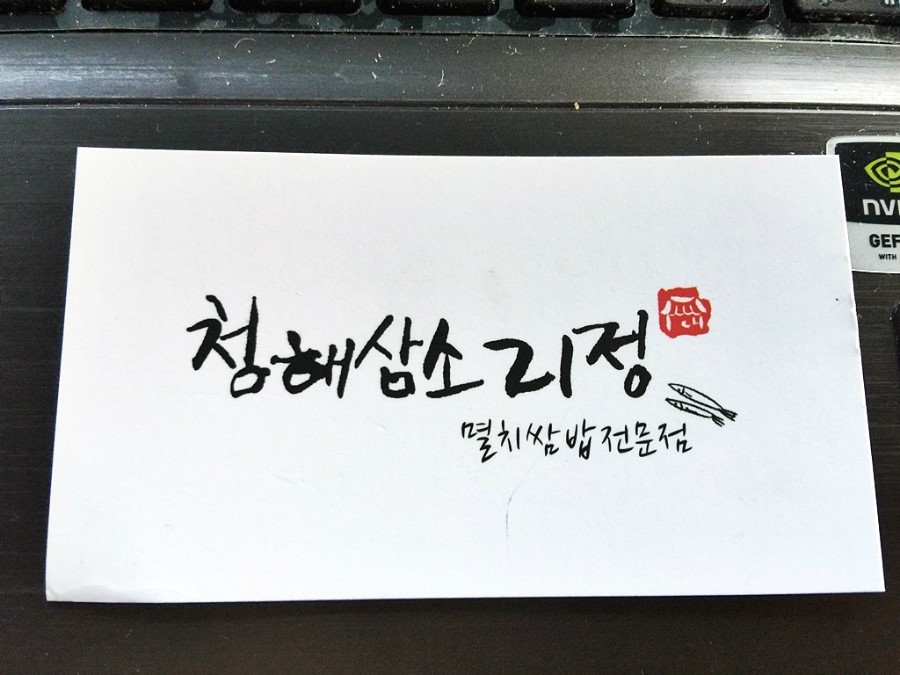 청해삼소리정
멸치쌈밥전문점
NVI
GEF
WITH